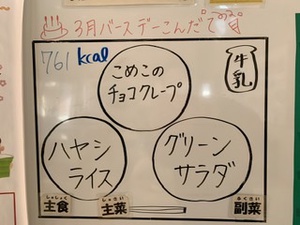 3月バースデーこんだての日
761 kcal
牛乳
こめこの
チョコクレープ
ハヤシ
ライス
グリーン
サラダ
しゅしょく
主食
しゅさい
主菜
ふくさい
副菜